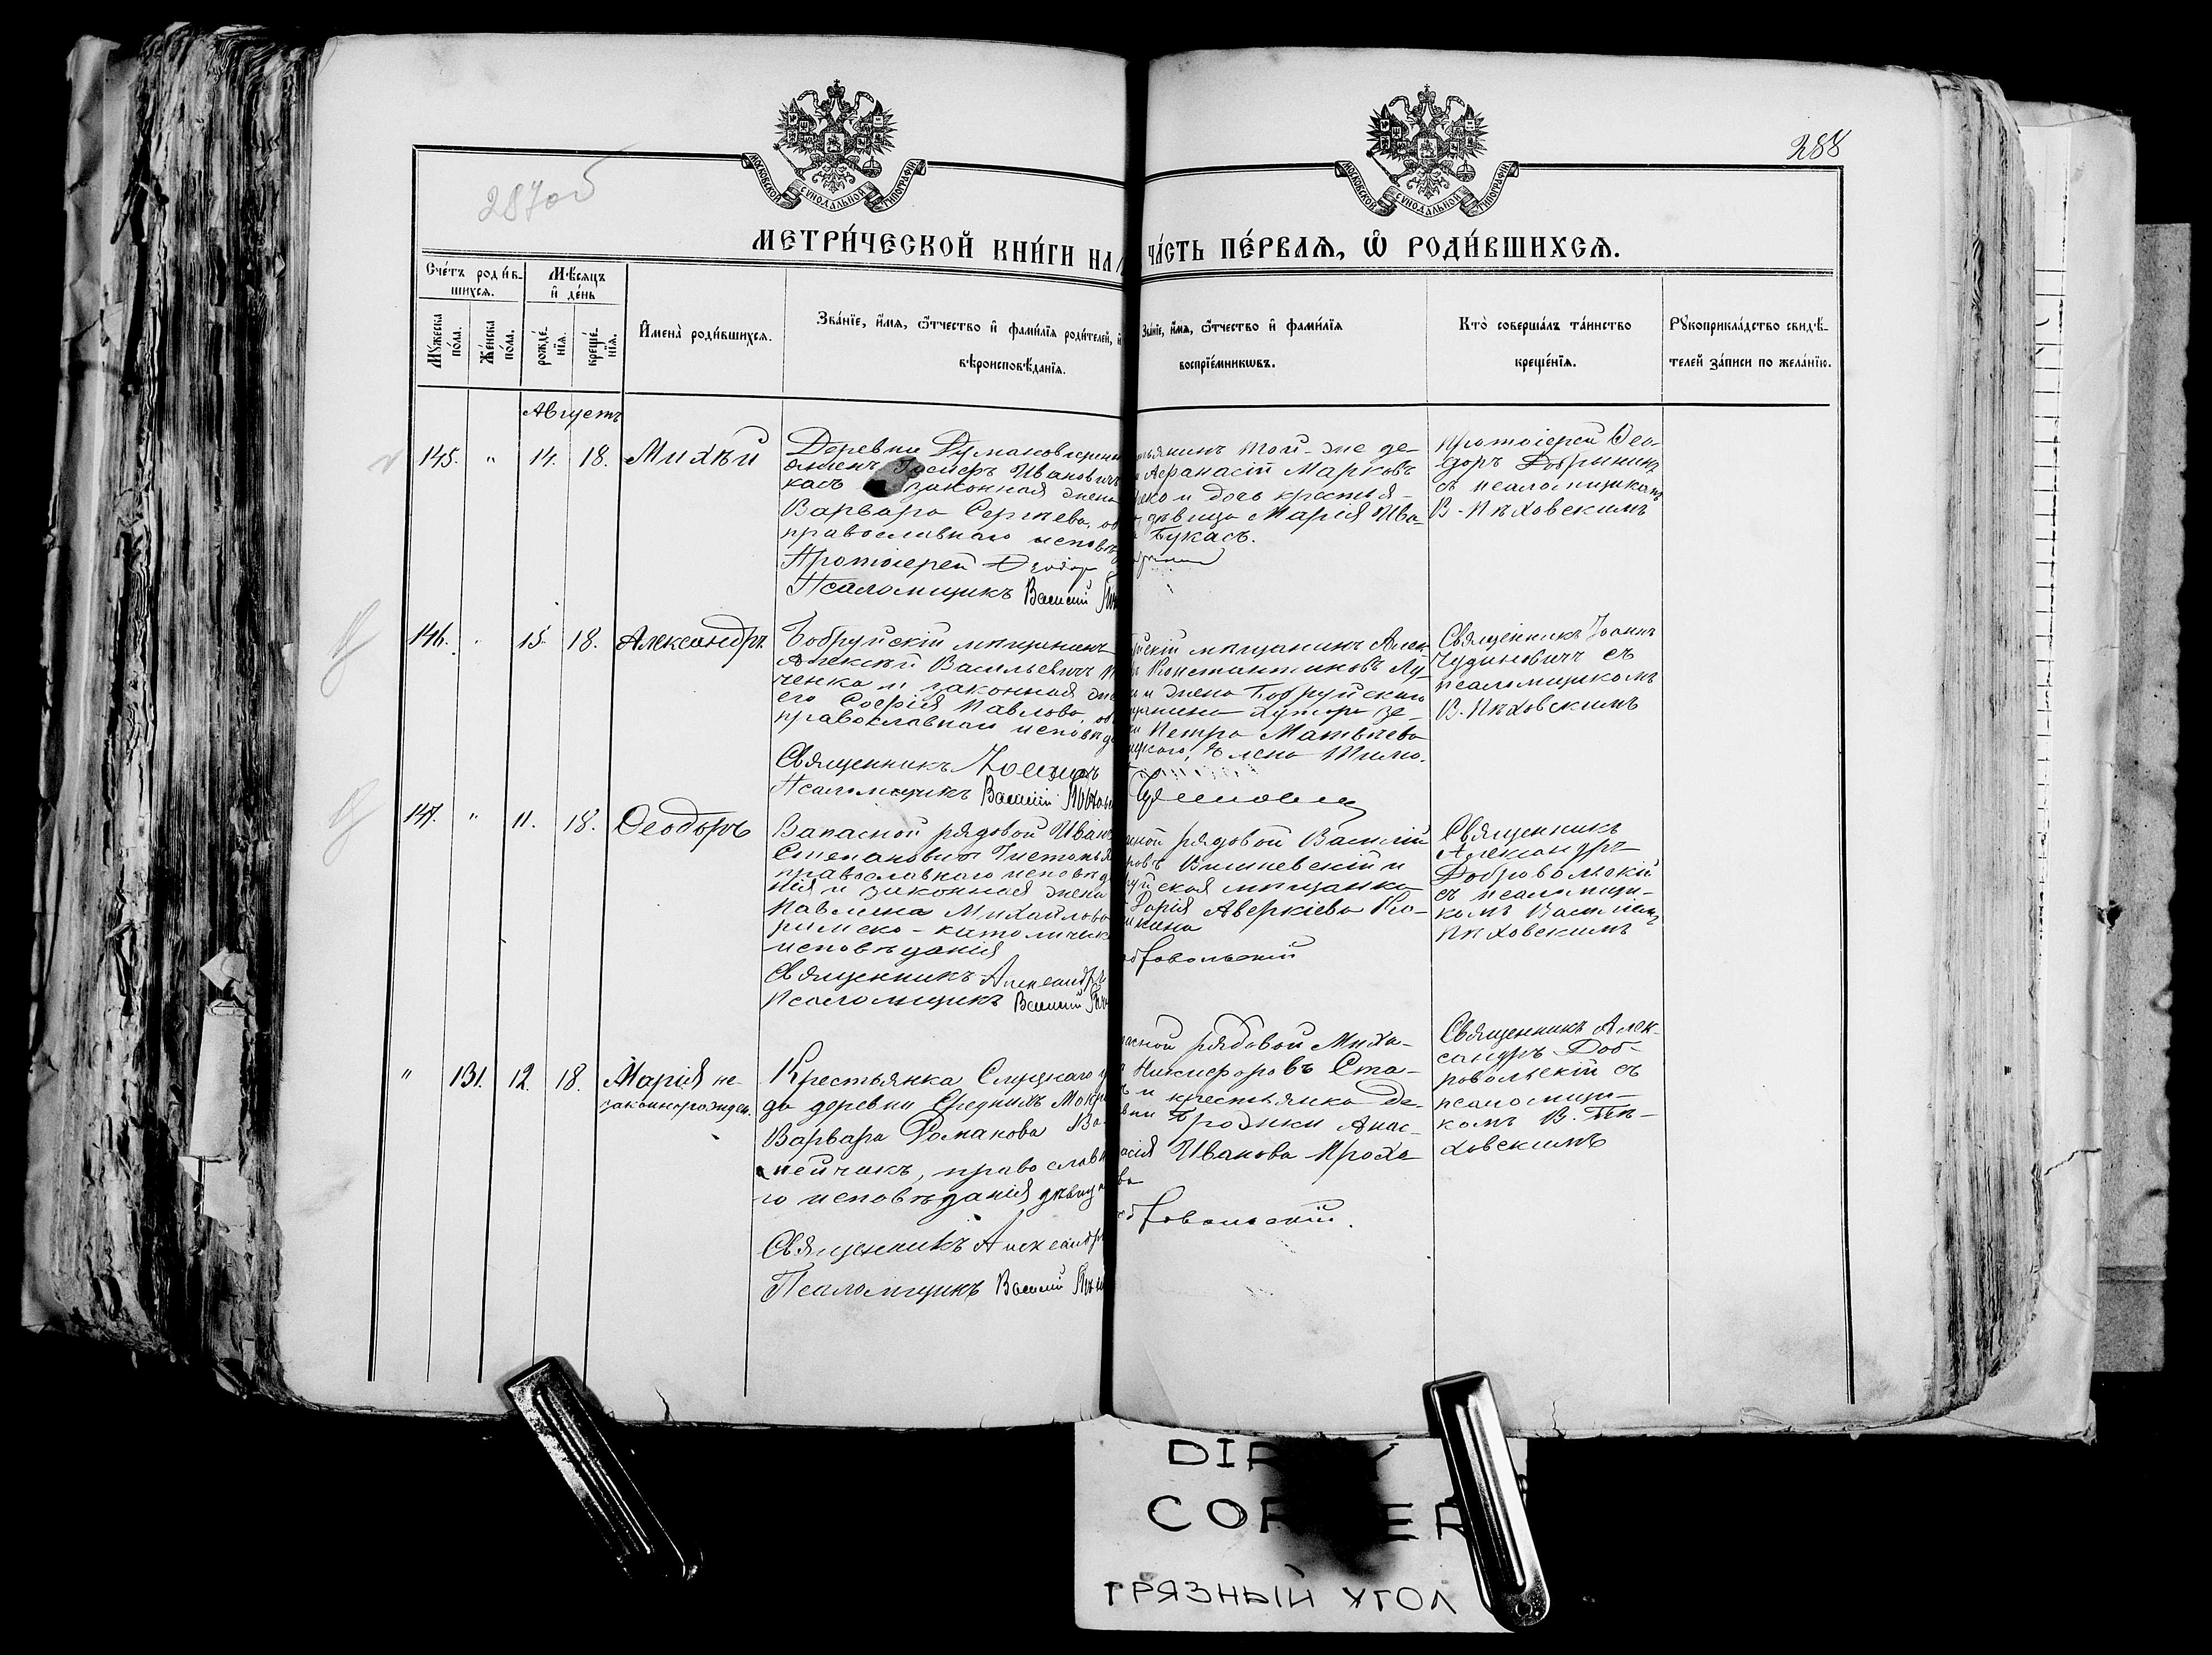 288
287об
МОСКОВСКОЙ СѴНОДАЛЬНОЙ ТИПОГРАФІИ
МОСКОВСКОЙ СѴНОДАЛЬНОЙ ТИПОГРАФІИ
МЕТРИ́ЧЕСКОЙ КНИ́ГИ НА
ЧА́СТЬ ПЕ́РВАЯ, Ѽ РОДИ́ВШИХСЯ.
Сче́тъ роди́в-
шихся.
Мѣ́сяцъ
и҆ де́нь
Му́жеска
по́ла.
Же́нска
по́ла.
рожде́-
нїя.
креще́-
нїя.
И҆мена̀ роди́вшихся.
Зва́нїе, и҆́мя, ѻ҆́тчество и҆ фами́лїя роди́телей, и҆
вѣроисповѣ́данїя.
Зва́нїе, и҆́мя, ѻ҆́тчество и҆ фами́лїя
воспрїе́мникѡвъ.
Кто̀ соверша́лъ та́инство
креще́нїя.
Рꙋкоприкла́дство свидѣ́-
телей за́писи по жела́нїю.
Августъ
145. " 14. 18. Михѣй
Деревни
Ивановичъ
касъ законная жена
Варвара Сергѣева, об
православнаго исповѣ
Протоіерей Ѳеодор
Псаломщикъ Василій
той-же де-
Афанасій Марковъ
и дочь крестья-
дѣвица Марія Ива-
Букасъ.
Протоіерей Ѳео-
доръ Добрынинъ
съ псаломщикомъ
В. Пѣховскимъ
146. " 15. 18. Александръ
Бобруйскій мѣщанинъ
Алексѣй Васильевичъ
ченка и законная же
его Софія Павлова, об
православнаго исповѣд
Священникъ Іоаннъ
Псаломщикъ Василій Пѣхов
йскій мѣщанинъ Алек-
Константиновъ Лу-
и жена Бобруйскаго
Петра Матвѣева
Елена Тимо.
Чудиновичъ
Священникъ Іоаннъ
Чудиновичъ съ
псаломщикомъ
В. Пѣховскимъ
147. " 11. 18. Ѳеодоръ
Запасной рядовой Иванъ
Степановичъ
православнаго исповѣд
нія и законная жена
Павлина Михайлова
римско-католическ
исповѣданія
Священникъ Александръ
Псаломщикъ Василій
сной рядовой Василій
ровъ Вишневскій и
руйская мѣщанка
Дарія Аверкіева Ко-
кина
обровольскій
Священникъ
Александръ
Добровольскій
съ псаломщи-
комъ Василіемъ
Пѣховскимъ
" 131. 12. 18. Марія не-
законнорожден.
Крестьянка Слуцкаго у
да деревни Среднихъ
Варвара Романова
пейчикъ, православн
го исповѣданія дѣвица
Священникъ Александръ
Псаломщикъ Василій
асной рядовой Миха-
Никифоровъ Ста-
ъ и крестьянка де-
вни Бродики Анас-
асія Ивановa Прохо
ва
обровольскій.
Священникъ Алек-
сандръ Доб-
ровольскій съ
псаломщи-
комъ В. Пѣ-
ховскимъ
DIRTY
CORNER
ГРЯЗНЫЙ УГОЛ